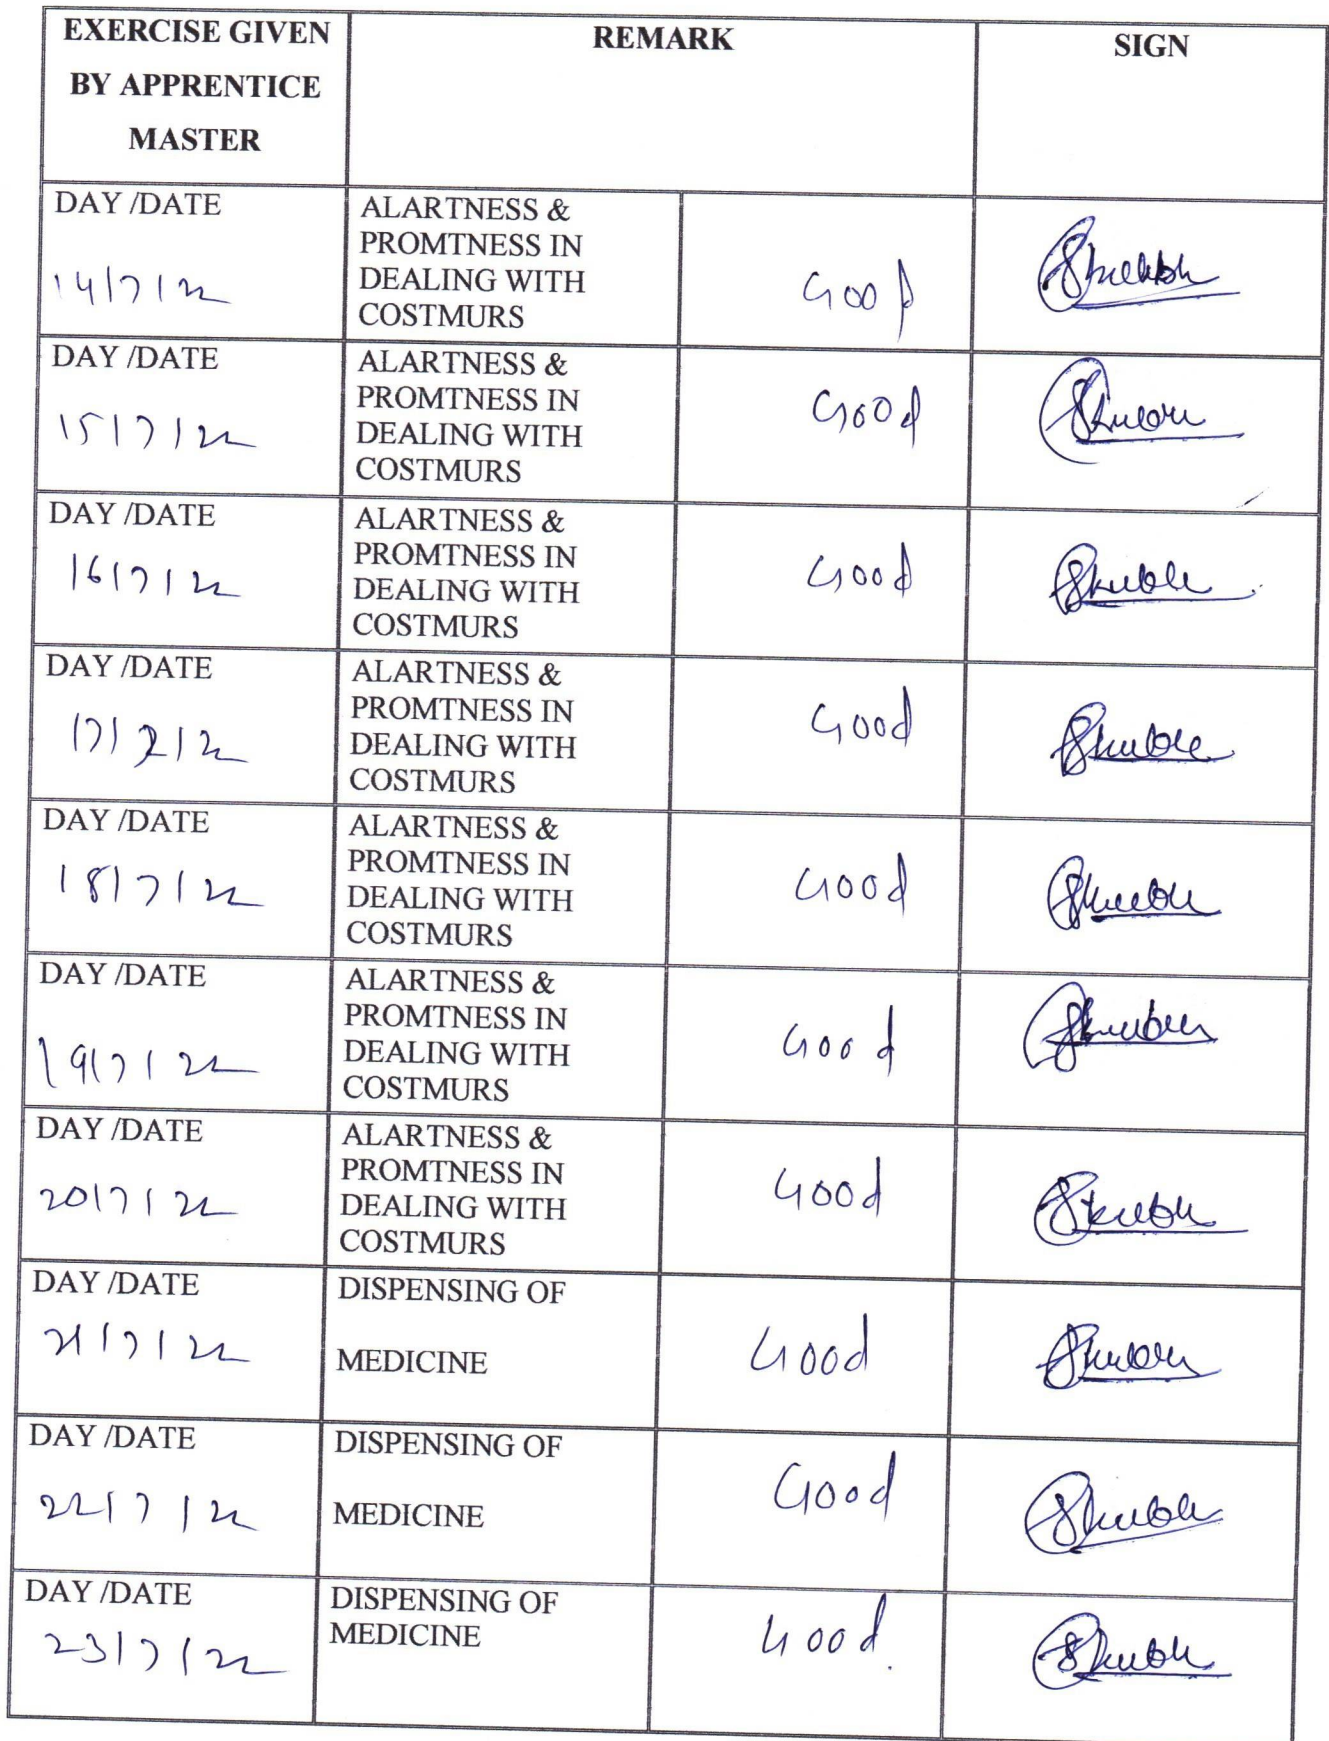 EXERCISE GIVEN
BY APPRENTICE
MASTER
REMARK
SIGN
DAY /DATE
14/7/22
ALARTNESS &
PROMTNESS IN
DEALING WITH
COSTMURS
Good
DAY /DATE
15/7/22
ALARTNESS &
PROMTNESS IN
DEALING WITH
COSTMURS
Good
DAY /DATE
16/7/22
ALARTNESS &
PROMTNESS IN
DEALING WITH
COSTMURS
Good
DAY /DATE
17/7/22
ALARTNESS &
PROMTNESS IN
DEALING WITH
COSTMURS
Good
DAY /DATE
18/7/22
ALARTNESS &
PROMTNESS IN
DEALING WITH
COSTMURS
Good
DAY /DATE
19/7/22
ALARTNESS &
PROMTNESS IN
DEALING WITH
COSTMURS
Good
DAY /DATE
20/7/22
ALARTNESS &
PROMTNESS IN
DEALING WITH
COSTMURS
Good
DAY /DATE
21/7/22
DISPENSING OF
MEDICINE
Good
DAY /DATE
22/7/22
DISPENSING OF
MEDICINE
Good
DAY /DATE
23/7/22
DISPENSING OF
MEDICINE
Good.